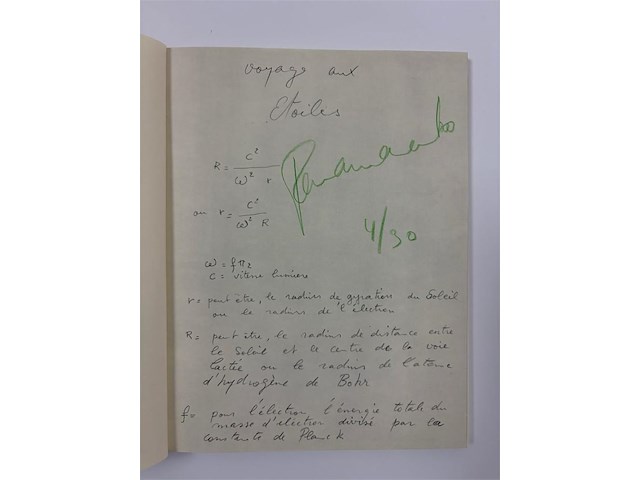 voyage aux
Etoiles
R = c² / ω² r
ou r = c² / ω² R
4/30
ω = f π 2
c = vitesse lumière
r = peut être, le radius de gyration du Soleil
ou le radius de l'électron
R = peut être, le radius de distance entre
le Soleil et le centre de la voie
lactée ou le radius de l'atome
d'hydrogène de Bohr
f = pour l'électron l'énergie totale du
masse d'électron divisé par la
constante de Planck